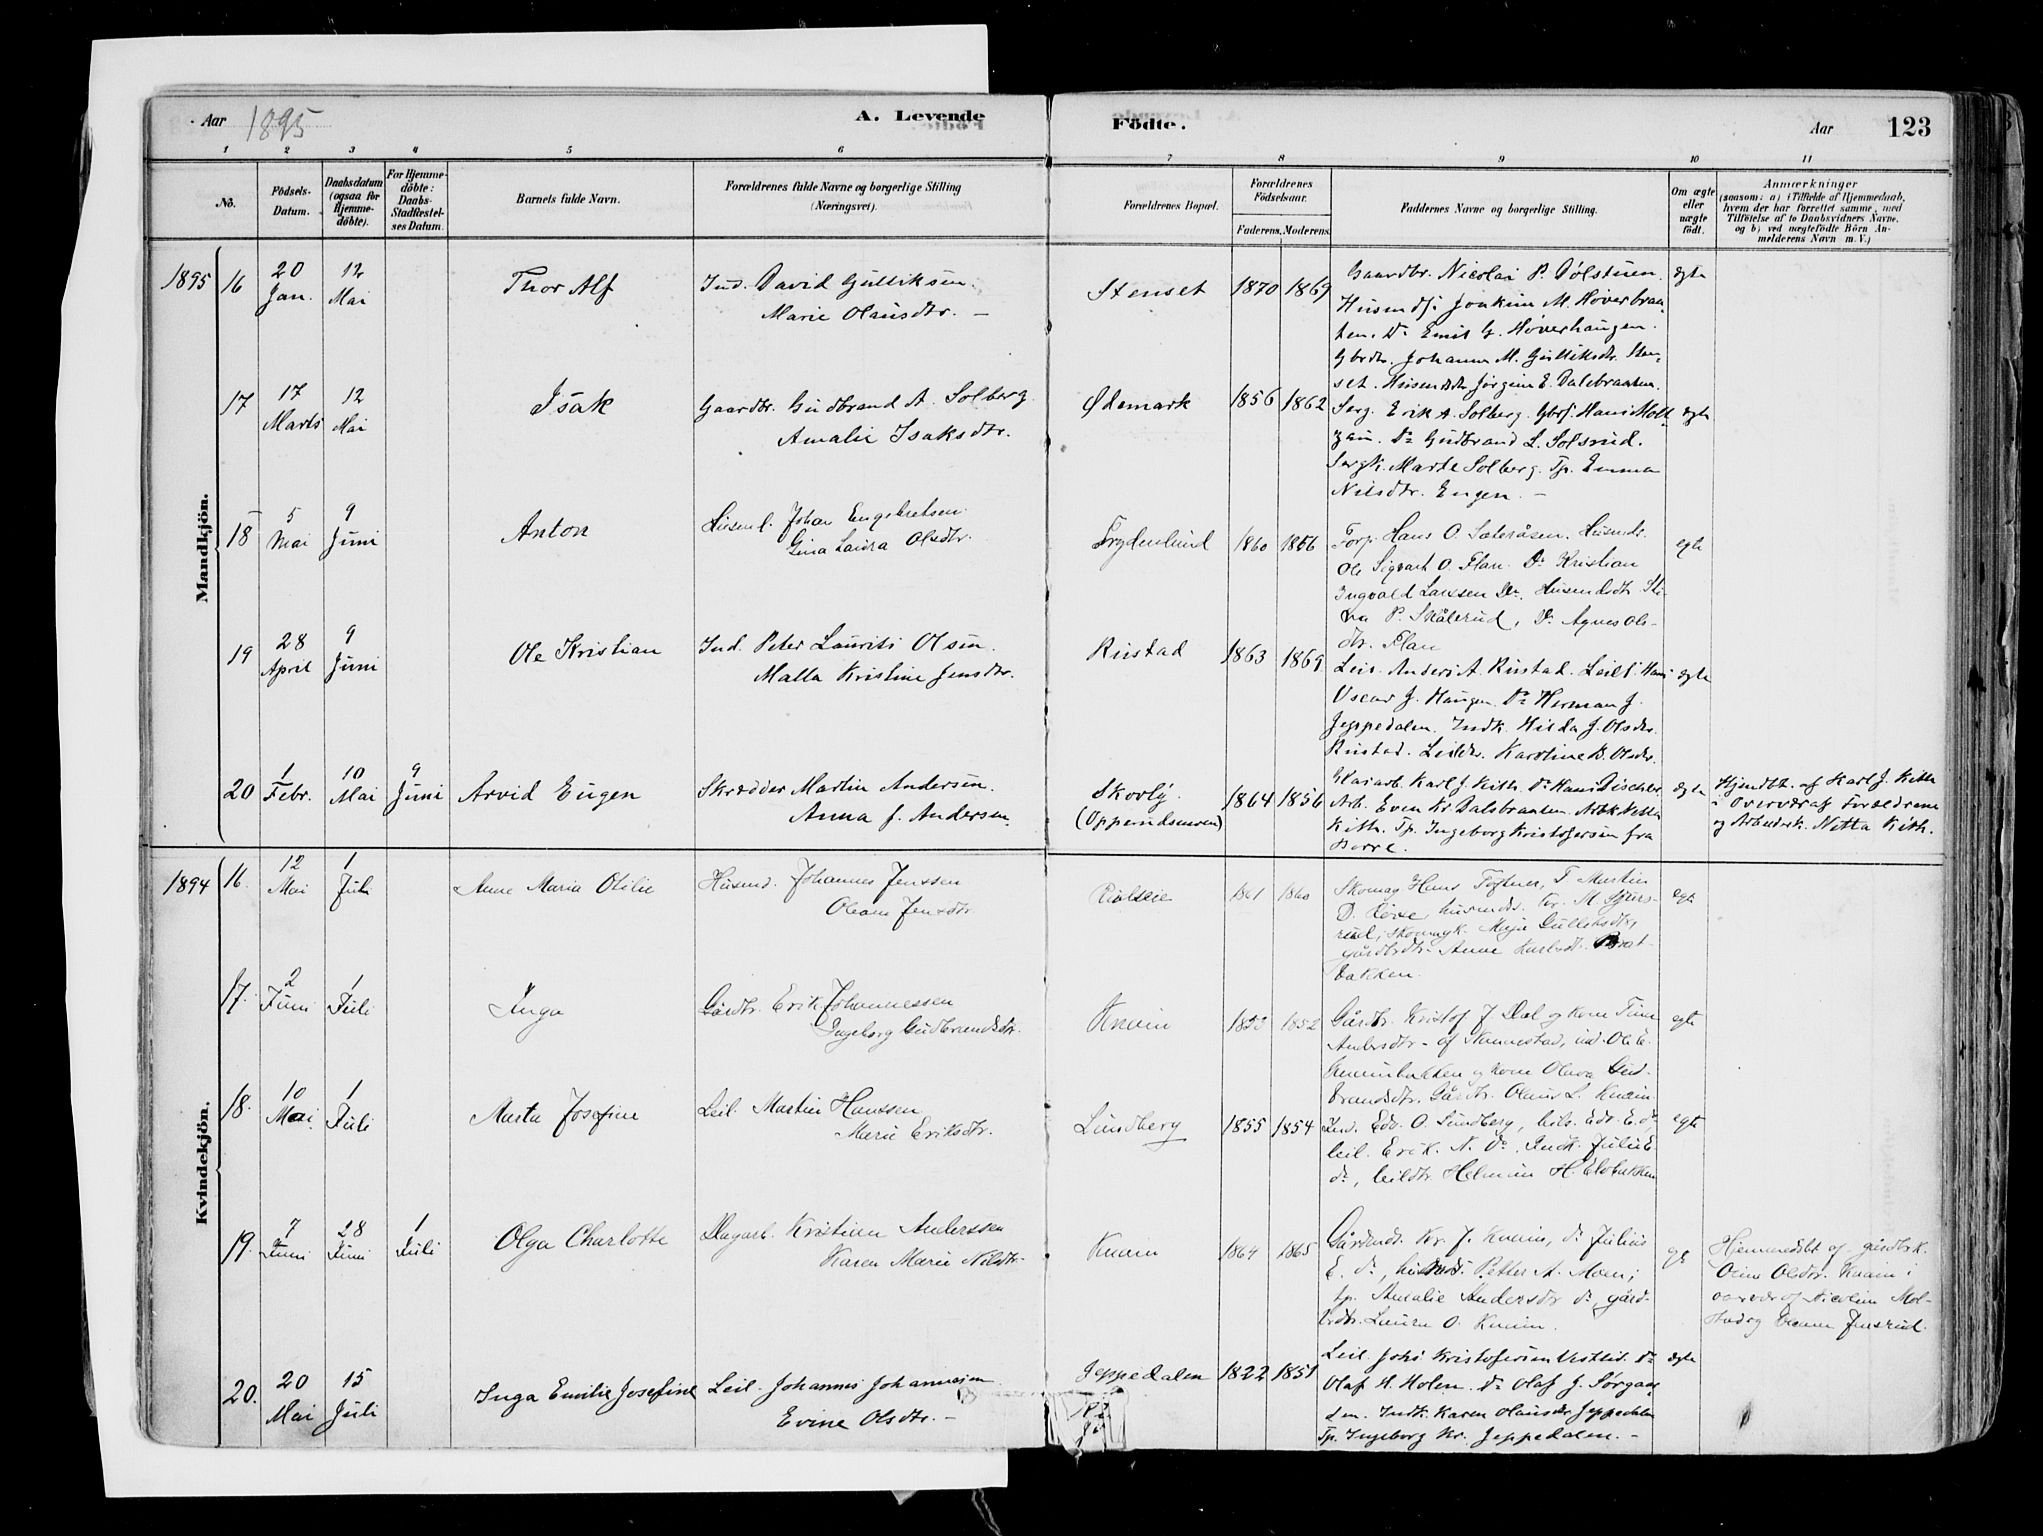 Aar 1895
A. Levende
Födte.
Aar
123
1 2 3 4 5 6 7 8 9 10 11
No.
Födsels-
Datum.
Daabsdatum
(ogsaa for
Hjemme-
döbte).
For Hjemme-
döbte:
Daabs-
Stadfæstel-
ses Datum.
Barnets fulde Navn.
Forældrenes fulde Navne og borgerlige Stilling
(Næringsvei).
Forældrenes Bopæl.
Forældrenes
Födselsaar.
Faderens. Moderens.
Faddernes Navne og borgerlige Stilling.
Om ægte
eller
uægte
födt.
Anmærkninger
(saasom: a) i Tilfælde af Hjemmedaab,
hvem der har forrettet samme, med
Tilföielse af to Daabsvidners Navne,
og b) ved uægtefödte Börn An-
melderens Navn m. V.)
Mandkjön.
1895 16
20 Jan.
12 Mai
Thor Alf
Ind. David Gulliksen.
Marie Olausdtr. –
Stenset
1870 1869
Gaardbr. Nicolai P. Dølstuen.
Husmdf: Joakim M. Høverbraa-
ten. Do Emil G. Høverhaugen.
Gbrdtr. Johanne M. Gulliksdtr. Sten-
set. Husmdtr Jørgine E. Dalebraaten.
ægte
17
17 Marts
12 Mai
Isak
Gaardbr. Gudbrand A. Solberg.
Amalie Isaksdtr.
Ødemark
1856 1862
Serg. Erik A. Solberg. Gbrs. Hans Molt-
zau. Do Gudbrand L. Solsrud.
Sergk. Marte Solberg. Tp. Emma
Nilsdtr. Engen. –
ægte
18
5 Mai
9 Juni
Anton
Husmd. Johan Engebretsen
Gina Laura Olsdtr.
Frydenlund
1860 1856
Forp. Hans O. Sæteråsen. Husmds.
Ole Sigvart O. Flan. Do Kristian
Ingvald Larssen Do. Husmdsdtr. Sti-
na P. Skålerud, Do Agnes Ols-
dtr. Flan
egte
19
28 April
9 Juni
Ole Kristian
Ind. Peter Laurits Olsen.
Malla Kristine Jensdtr.
Rustad
1863 1869
Leil. Anders A. Rustad. Leilf. Hans
Oscar J. Haugen. Do Herman J.
Jeppedalen. Indk. Hilda J. Olsdtr.
Rustad. Leildtr. Karoline B. Olsdtr.
ægte
20
1 Febr.
10 Mai
9 Juni
Arvid Eugen
Skrædder Martin Andersen.
Anna J. Andersen.
Skovly.
(Opperudsmoen)
1864 1856
Glasarb. Karl J. Kith. Do Hans Discher.
Arb. Even Kr. Dalsbraaten. Arbk Netta
Kith. Tp. Ingeborg Kristofersen fra
Borre.
ægte
Hjmdbt. af Karl J. Kith
i Overvær af Forældrene
og Arbeiderk. Netta Kith.
Kvindekjön.
1894 16.
12 Mai
1 Juli
Anne Maria Otilie
Husmd. Johannes Jenssen
Oleane Jensdtr.
1861 1860
Skomag Hans Toftner, T Martin
D. husmds. Kr. M Sjurs-
rud, skomagk. Maja Gulliksdtr,
gårdbrdtr. Anne Karlsdtr.
bakken.
egte
17.
2 Juni
1 Juli
Inga
Gårdbr. Erik Johannessen
Ingeborg Gudbrandsdtr.
Knain
1853 1852
Gårdbr. Kristof J Dal og kone Tina
Andersdtr – af Nannestad, ind. Ole G.
og kone Olava Gud-
brandsdtr. Gårdbr. Olaus L. Knain.
egte
18.
10 Mai.
1 Juli
Marta Josefine
Leil. Martin Hanssen
Marie Eriksdtr.
Lundberg
1855 1854
Ind. Edv. O. Lundberg, leils. Edv. E. do
leil. Erik. N. Do. Indk. Julie E.
do, leildtr. Helmine H. Elvbakken
egte
19.
7 Juni
28 Juni
1 Juli
Olga Charlotte
Dagarb. Kristian Anderssen
Karen Marie Nilsdtr.
Knain
1864 1865
Gårdmds. Kr. J. Knain, do Julius
E. do, husmds. Petter A. Moen;
tp. Amalie Andersdtr do, gård-
brdtr. Laura O. Knain.
Hjemmedöbt af gårdbrk.
Olsdtr. Knain i
overvær af Nicoline Mol-
20.
20 Mai
15 Juli
Inga Emilie Josefine
Leil. Johannes Johannesen
Evine Olsdtr. –
Jeppedalen
1822 1851
Leil. Johs Kristofersen Vestlid. Do
Olaf H. Holen. do Olaf J. Sørgaar-
den. Indk. Karen Olausdtr Jeppedalen
Tp. Ingeborg Kr. Jeppedalen. –
ægte